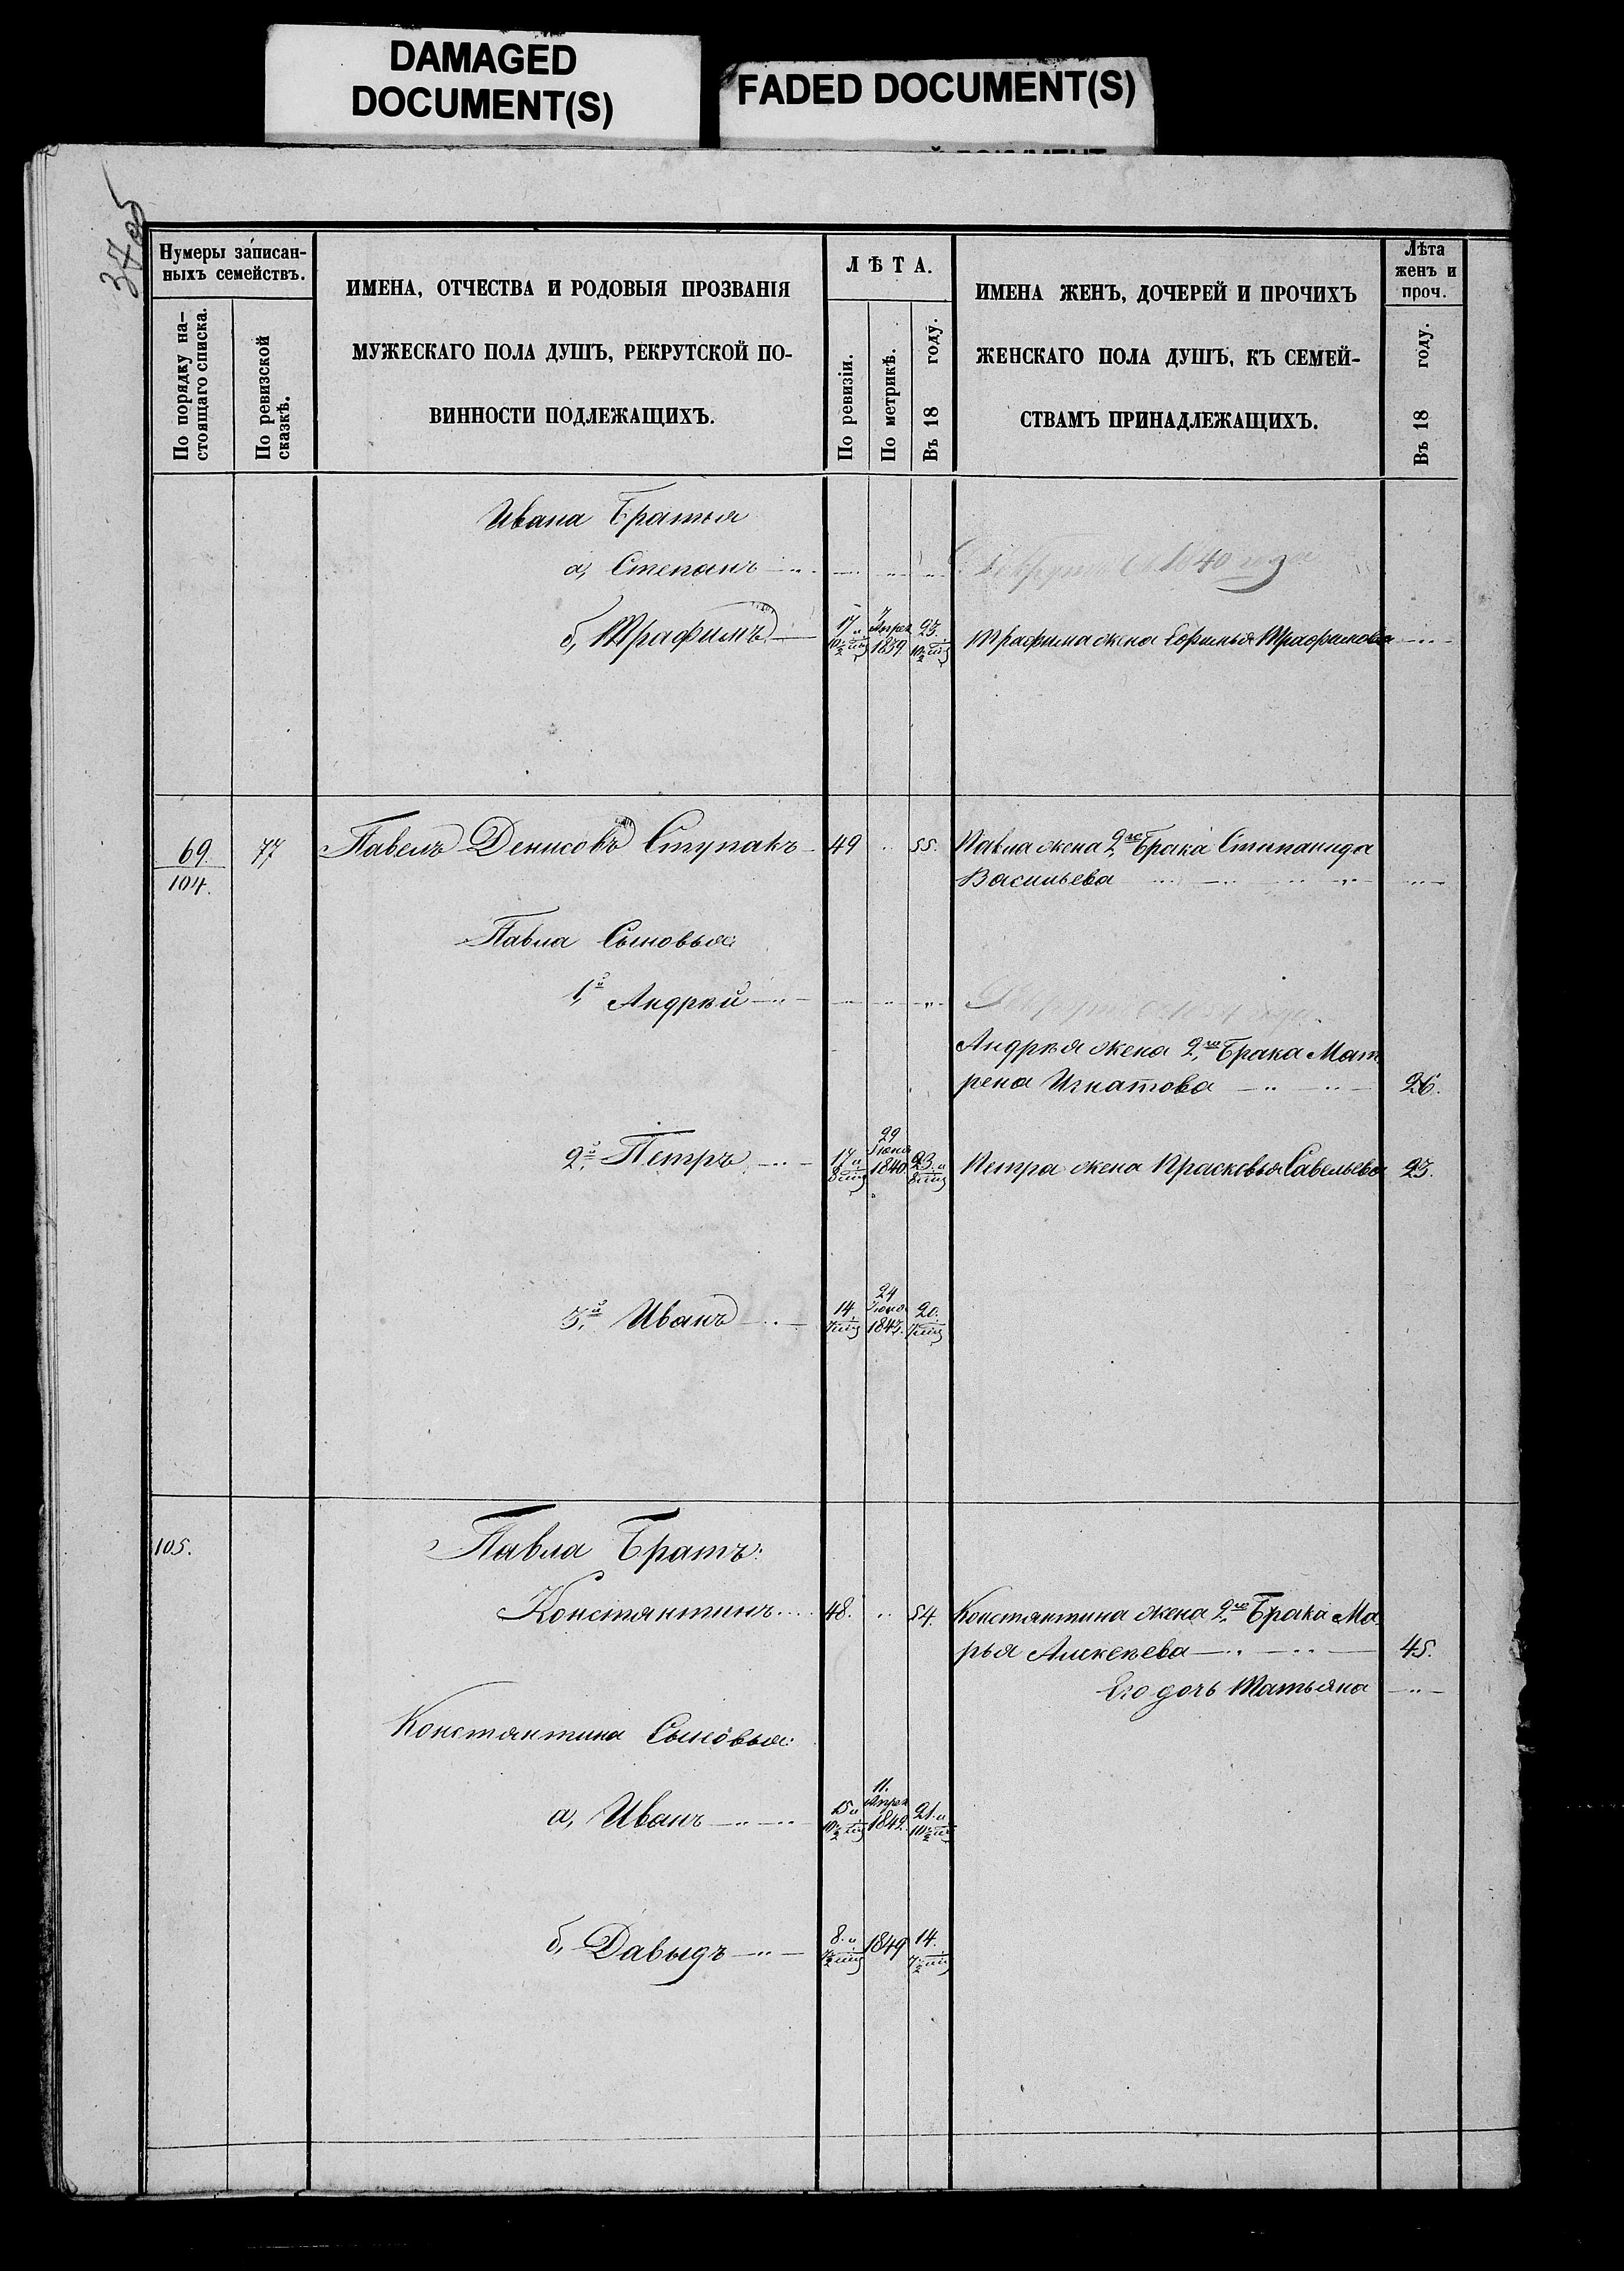 DAMAGED
DOCUMENT(S)
FADED DOCUMENT(S)
Нумеры записан-
ныхъ семействъ.
По порядку на-
стоящаго списка.
По ревизской
сказкѣ.
ИМЕНА, ОТЧЕСТВА И РОДОВЫЯ ПРОЗВАНІЯ
МУЖЕСКАГО ПОЛА ДУШЪ, РЕКРУТСКОЙ ПО-
ВИННОСТИ ПОДЛЕЖАЩИХЪ.
ЛѢТА.
По ревизіи.
По метрикѣ.
Въ 18 году.
ИМЕНА ЖЕНЪ, ДОЧЕРЕЙ И ПРОЧИХЪ
ЖЕНСКАГО ПОЛА ДУШЪ, КЪ СЕМЕЙ-
СТВАМЪ ПРИНАДЛЕЖАЩИХЪ.
Лѣта
женъ и
проч.
Въ 18 году.
Ивана Братья
а, Степанъ
1840 года
б, Трафимъ 17 1839 23 Трафима жена Трафимова
69 77 Павелъ Денисовъ Ступакъ 49 55. Павла жена 2го Брака Степанида
104. Васильева
Павла Сыновья:
1й Андрѣй
года
Андрѣя жена 2го Брака Мат
рена Игнатова 26.
2й Петръ 17 29 Іюня 1840 23 Петра жена Прасковья Савельева 23.
3й Иванъ 14 24 Іюня 1843. 20.
105. Павла Братъ:
Констянтинъ 48. 54. Констянтина жена 2го Брака Ма
рья Алексѣева 45.
Его дочь Татьяна
Констянтина Сыновья:
а, Иванъ 15 11. Апрел 1842. 21.
б, Давыдъ 8. 1849 14.